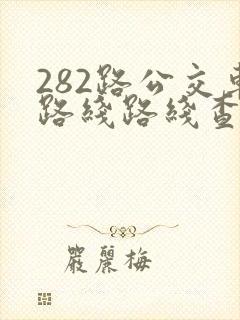 282路公交車
路綫路綫查
嚴麗梅